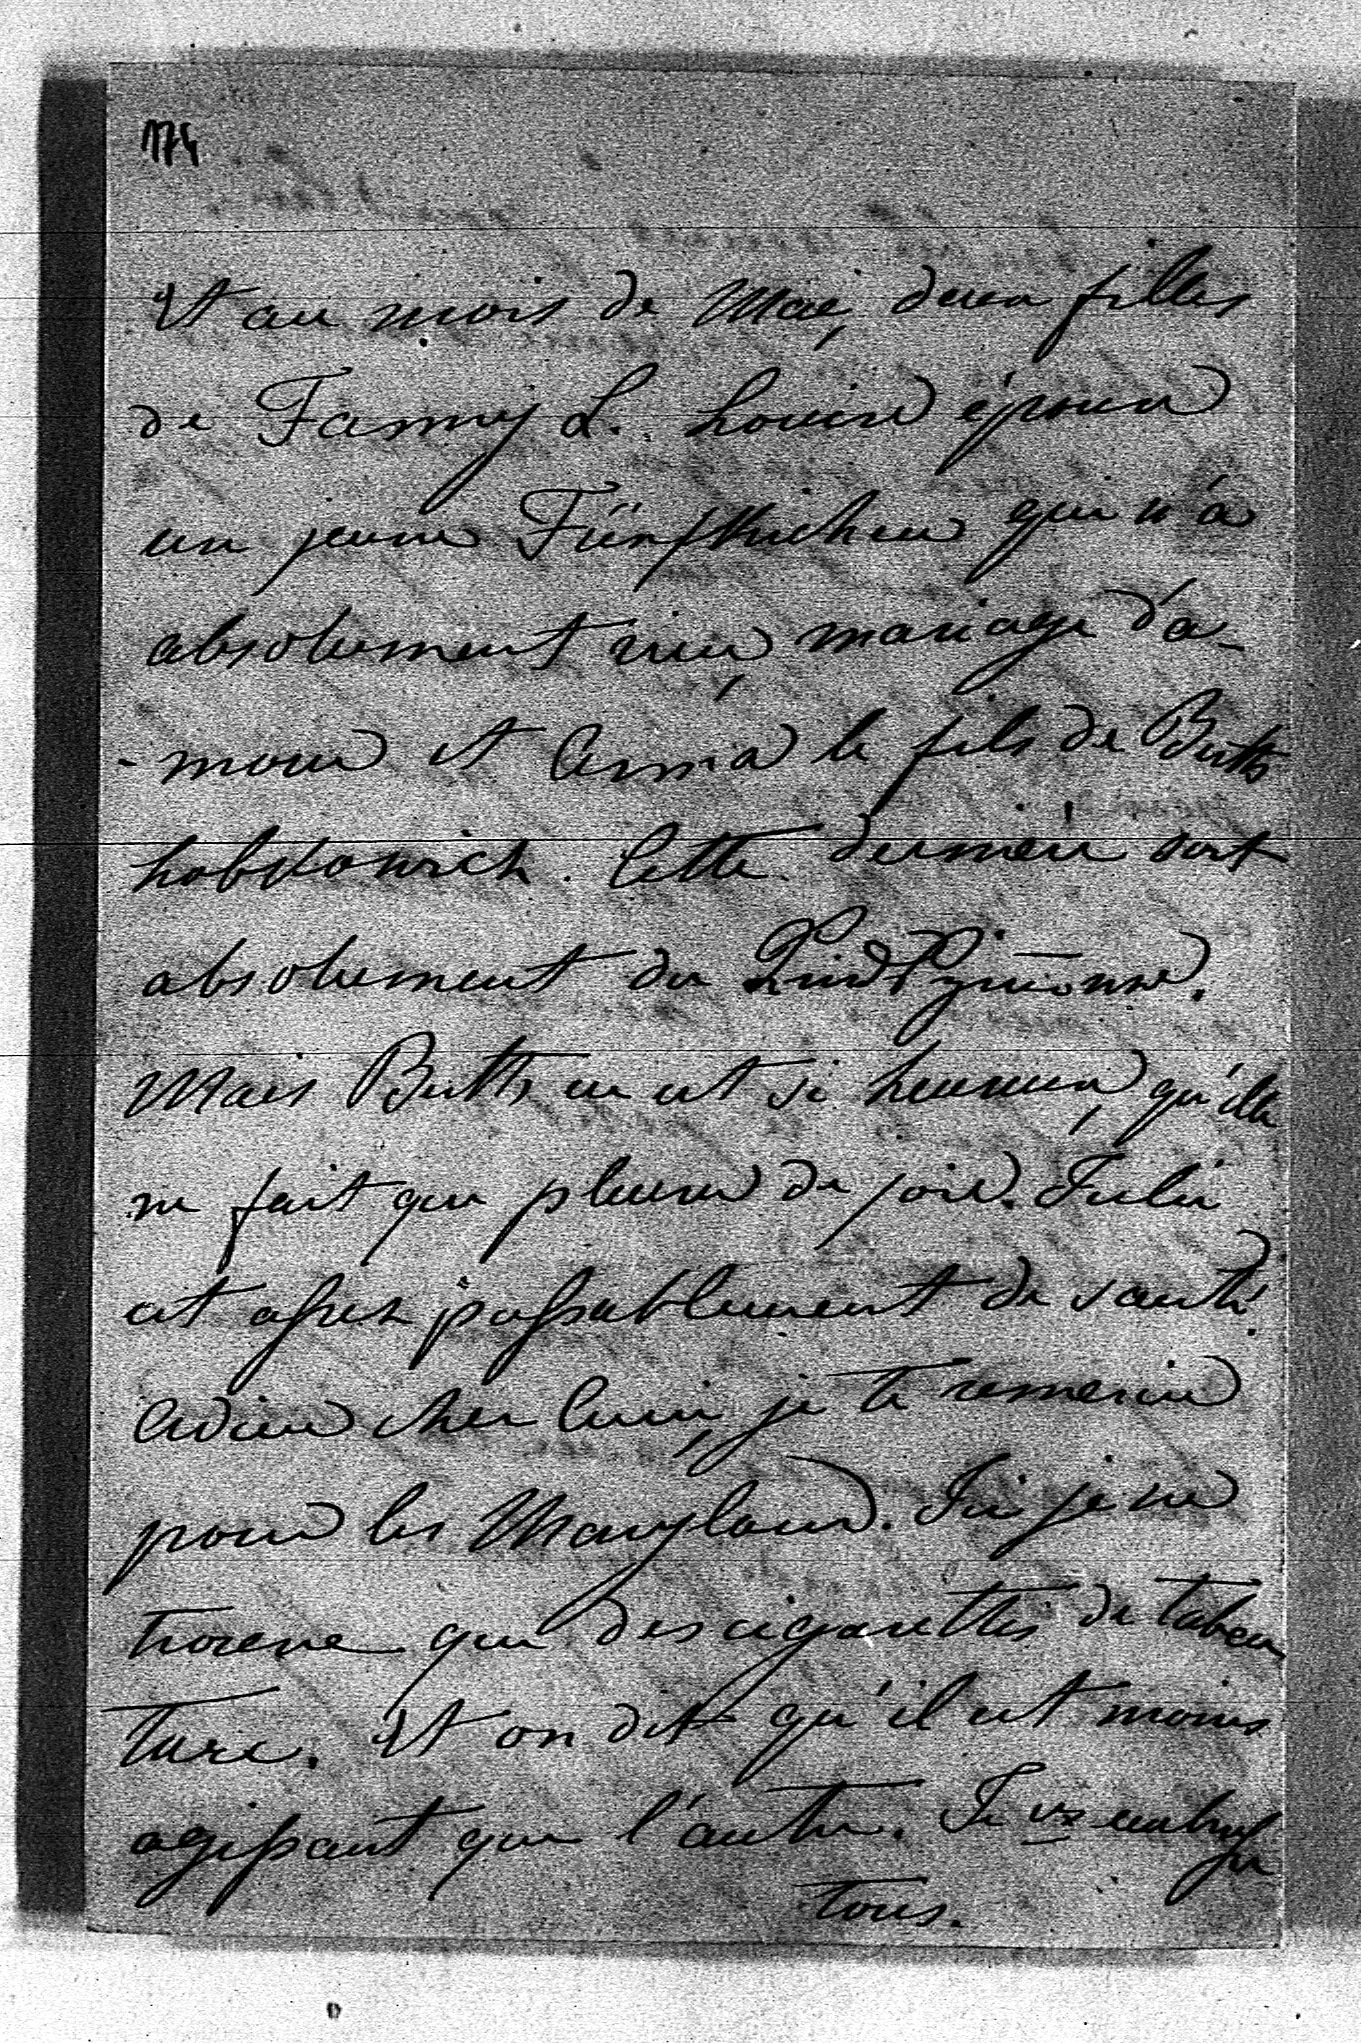 174
Et au mois de Mai, deux filles
de Fanny L. Louise épouse
un jeune Fünfkirchen qui n'a
absolument rien, mariage d'a-
-mour et Anna le fils de Betts
Lobkowich. Cette dernière sort
absolument du
Mais Betts en est si heureux, qu'elle
ne fait que pleurer de joie. Julie
est assez passablement de santé.
Adieu cher Ami, je te remercie
pour les Maryland. Ici je ne
trouve que des cigarettes de tabac
turc. Et on dit qu'il est moins
agissant que l'autre. Je vs embrasse
tous.